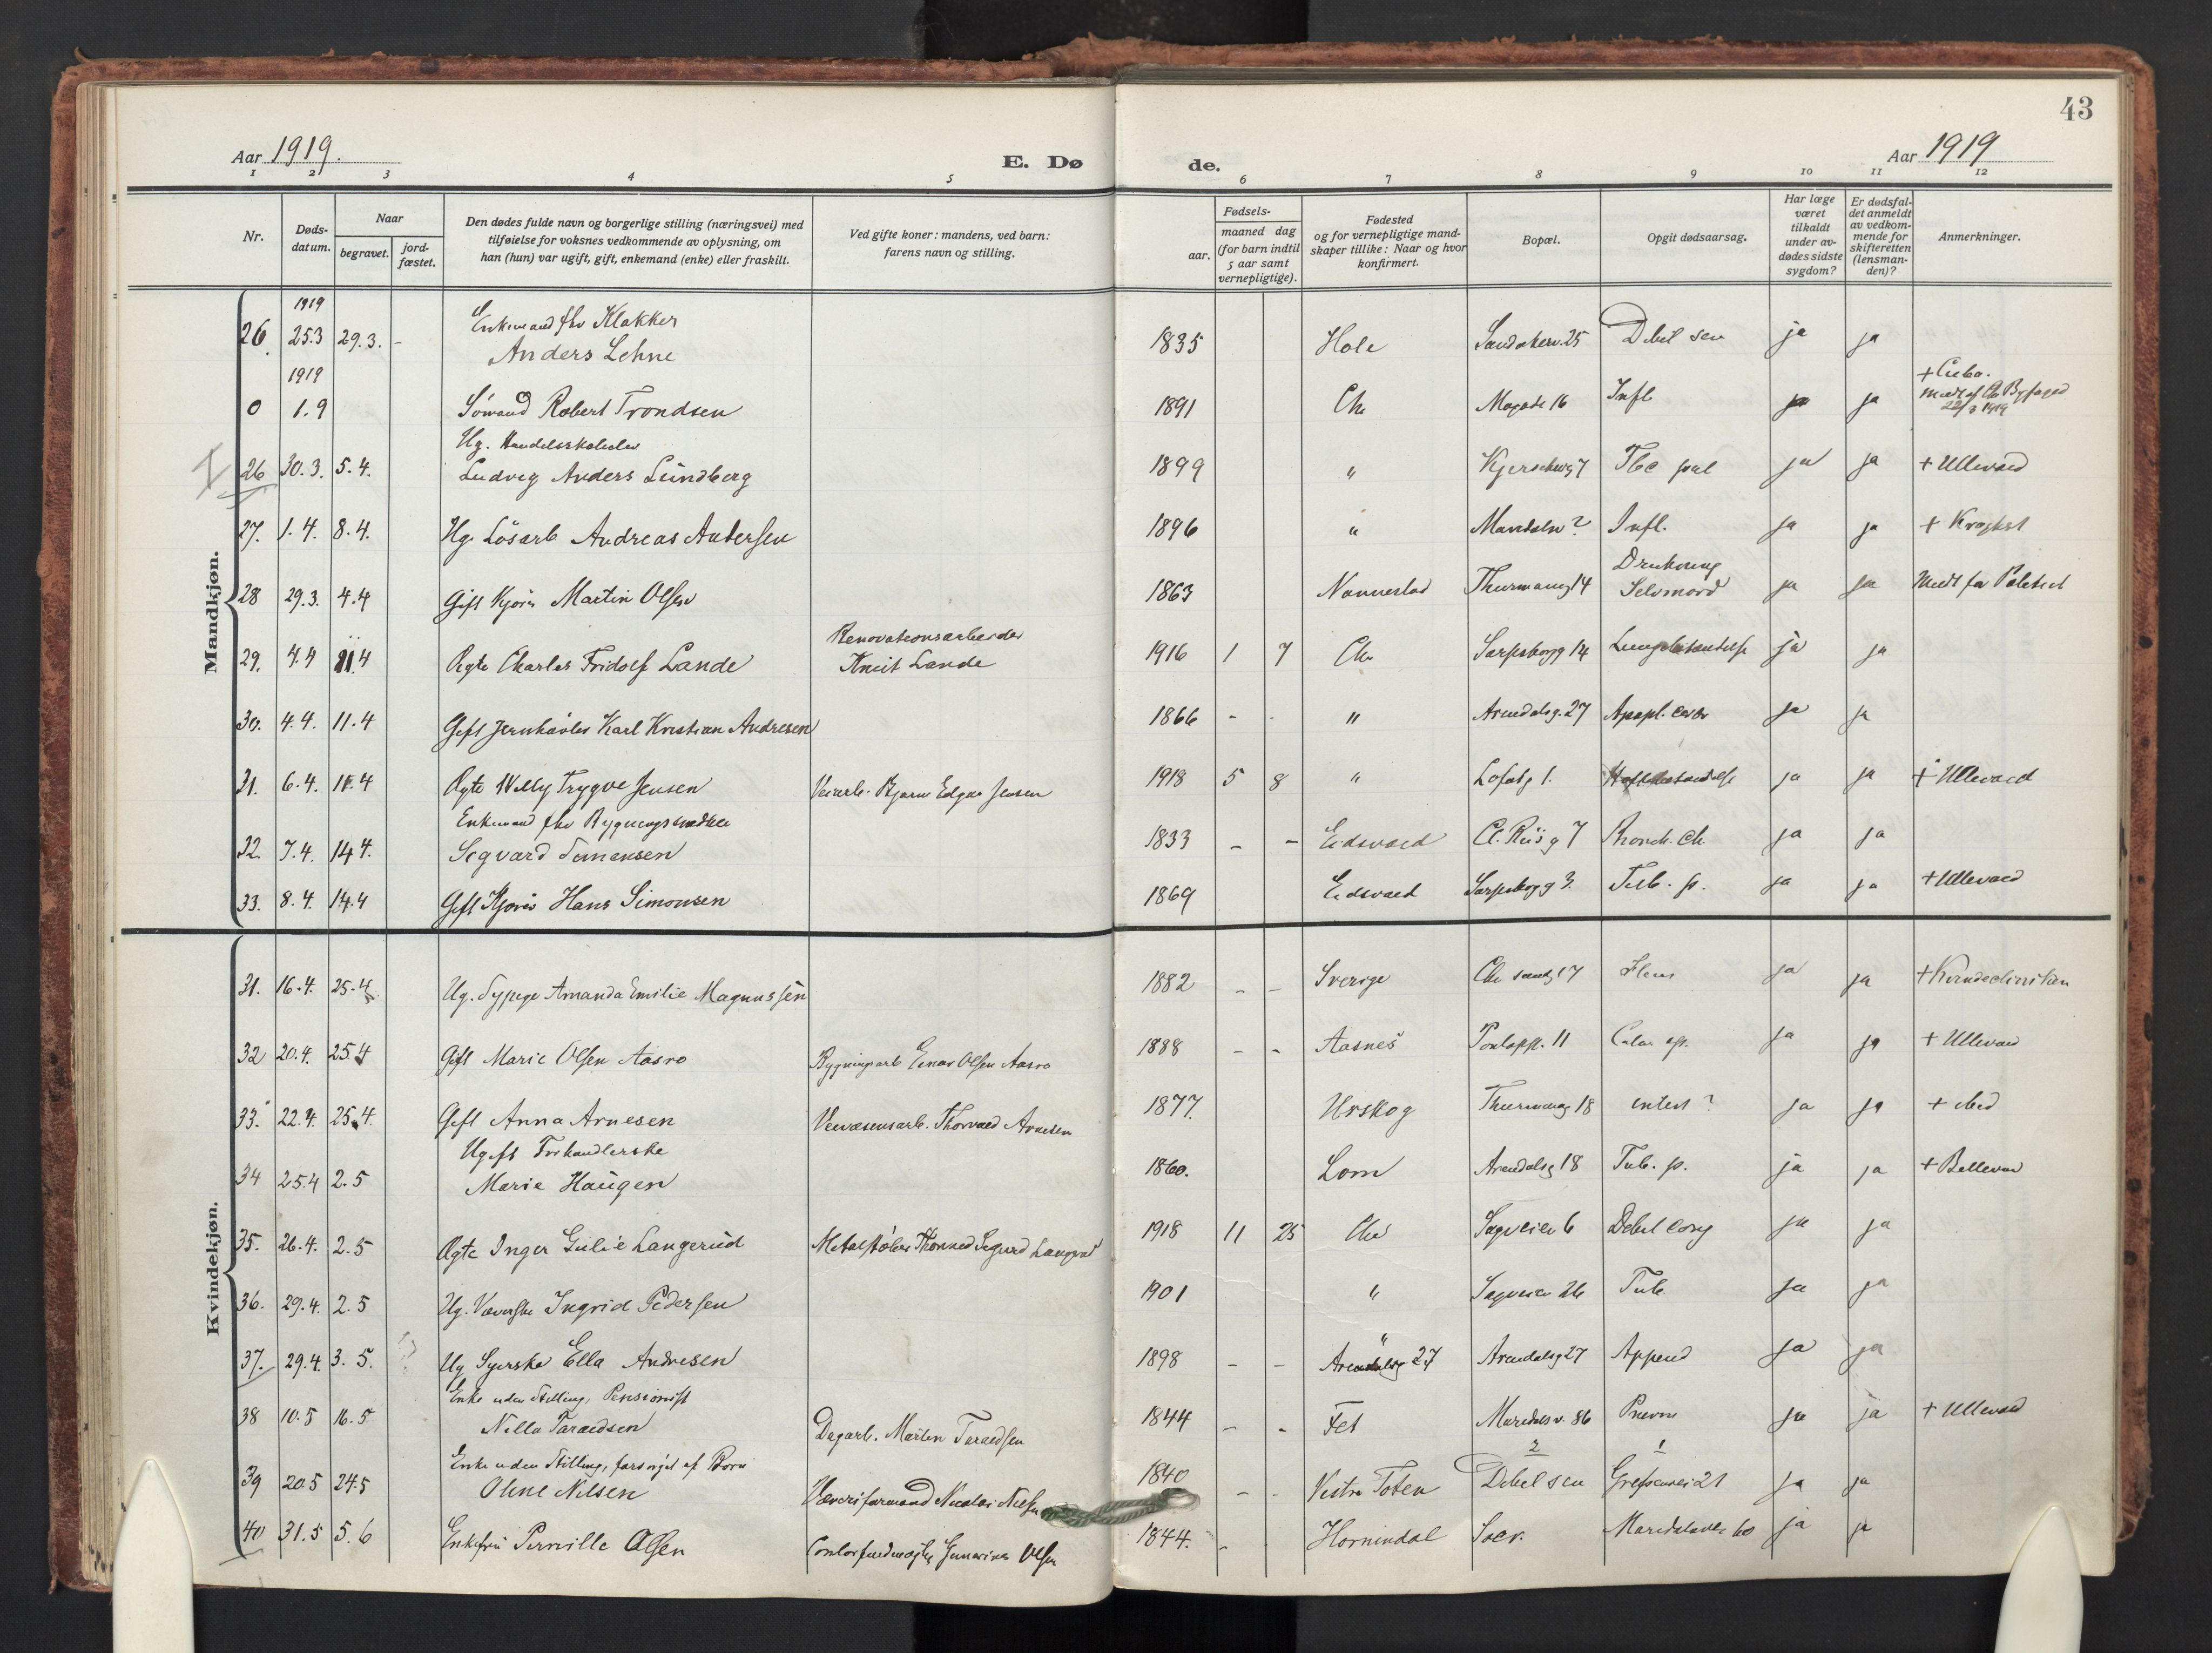 43
Aar 1919.
E. Dø de.
Aar 1919
1 2 3 4 5 6 7 8 9 10 11 12
Nr.
Døds-datum.
Naar
begravet.
jord-fæstet.
Den dødes fulde navn og borgerlige stilling (næringsvei) med
tilføielse for voksnes vedkommende av oplysning, om
han (hun) var ugift, gift, enkemand (enke) eller fraskilt.
Ved gifte koner: mandens, ved barn:
farens navn og stilling.
Fødsels-
aar.
maaned dag
(for barn indtil
5 aar samt
vernepligtige).
Fødested
og for vernepligtige mand-
skaper tillike: Naar og hvor
konfirmert.
Bopæl.
Opgit dødsaarsag.
Har læge
været
tilkaldt
under av-
dødes sidste
sygdom?
Er dødsfal-
det anmeldt
av vedkom-
mende for
skifteretten
(lensman-
den)?
Anmerkninger.
Mandkjøn.
1919
Enkemand fhv Klokker
26. 25.3 29.3. - Anders Lehne 1835 Hole 25 Debil sen ja ja
1919
+ Cuba.
0 1.9 Sömand Robert Trondsen 1891 Chr 16 Infl ja ja 22/3 1919
Ug. Handelsskoleelev
26 30.3. 5.4. Ludvig Anders Lundberg 1899 " 7 Tbc pul ja ja + Ullevaal
27. 1.4. 8.4. Ug. Lösarb Andreas Andersen 1896 " Maridaln ? Infl. ja ja + Krogstøt
Drukning
28 29.3. 4.4 Gift Kjörer Martin Olsen 1863 Nannestad Thurmannsg 14 Selvmord ja ja
Renovationsarbeider
29. 4.4 11.4 Ægte Charles Fridolf Lande Knut Lande 1916 1 7 Chr Sarpsborgg 14 Lungebetændelse ja ja
30. 4.4. 11.4 Gift Jernhøvler Karl Kristian Andresen 1866 - - " Arendalsg. 27 Apopl. cer ja ja
31. 6.4. 11.4 Ægte Willy Trygve Jensen Veiarb. Bjarne Edgar Jensen 1918 5 8 " Lofotg 1. ja ja + Ullevaal
Enkemand fhv Bygningssnedker
32. 7.4. 14.4. Sigvard Simensen 1833 - - Eidsvold Cl. Riisg 7 Bronch. Ch. ja ja
33. 8.4. 14.4 Gift Kjörer Hans Simonsen 1869 Eidsvold Sarpsborgg 3. Tub. p. ja ja + Ullevaal
Kvindekjøn.
31. 16.4. 25.4 Ug. Sypige Amanda Emilie Magnussen 1882 - - Sverige 17 Ileus ja ja + Kvindeklinikken
32 20.4. 25.4 Gift Marie Olsen Aasro Bygningsarb Einar Olsen Aasro 1888 - - Aasnes 11 ja ja + Ullevaal
33. 22.4. 25.4. Gift Anna Arnesen Veivæsensarb. Thorvald Arnesen 1877. Urskog Thurmannsg 18 enterit ? ja ja + ibid
Ugift Frihandlerske
34 25.4 2.5 Marie Haugen 1860. Lom Arendalsg 18 Tub. p. ja ja +
35. 26.4. 2.5 Ægte Inger Julie Langerud Metalstöber Sigurd Langerud 1918 11 25 Chr Sagveien 6 Debil cong ja ja
36. 29.4. 2.5 Ug. Væverske Ingrid Pedersen 1901 " Sagveien 26 Tub. ja ja
37. 29.4. 3.5. Ug Syerske Ella Andresen 1898 - - " Arendalsg 27 Arendalsg 27 Append ja ja
Enke uden Stilling, Pensionist
38 10.5 16.5 Nilla Taraldsen Dagarb. Martin Taraldsen 1844 - - Fet Maridalsv. 86 Pneum ja ja + Ullevaal
Enke uden Stilling, forsørget af Børn
2 1
39 20.5 24.5 Oline Nilsen Væveriformand Nicolai Nielsen 1840 - - Vestre Toten Debil sen Grefsenvei 21 ja ja
40 31.5 5.6 Enkefru Pernille Olsen Olsen 1844. - Hornindal Maridalsvei 60 ja ja